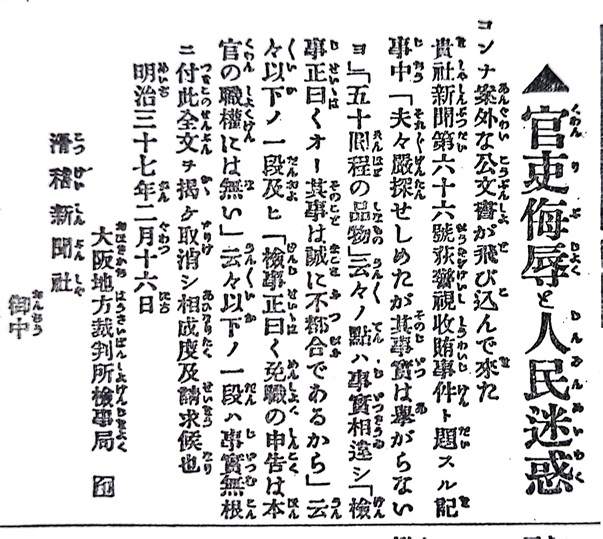 ▲官吏侮辱と人民迷惑
コンナ案外な公文書が飛び込んで來た
貴社新聞第六十六號荻警視收賄事件ト題スル記
事中「夫々嚴探せしめたが其事實は擧がらない
ヨ」「五十圓程の品物」云々ノ點ハ事實相違シ「檢
事正曰くオー其事は誠に不都合であるから」云
々以下ノ一段及ヒ「檢事正曰く免職の申告は本
官の職權には無い」云々以下ノ一段ハ事實無根
ニ付此全文ヲ揭ケ取消シ相成度及請求候也
明治三十七年二月十六日
大阪地方裁判所檢事局 印
滑稽新聞社
御中